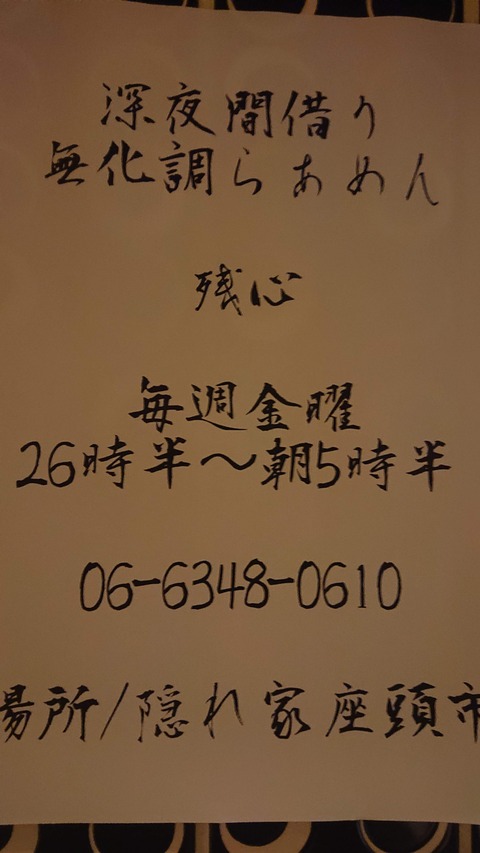 深夜間借り
無化調らぁめん
残心
毎週金曜
26時半～朝5時半
06-6348-0610
場所/隠れ家座頭市